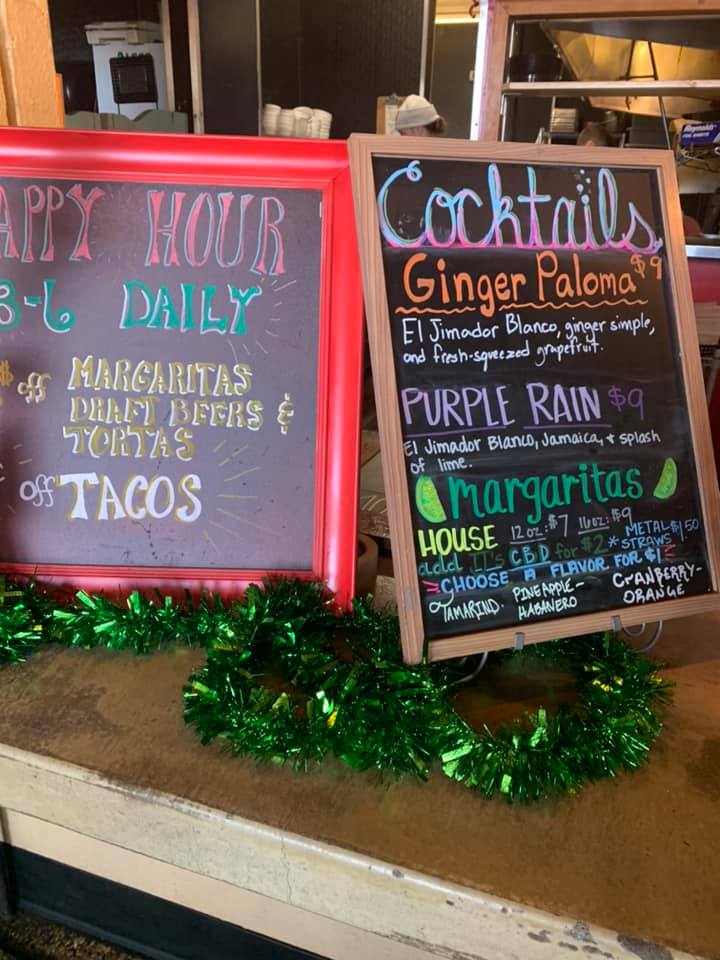 APPY HOUR
3-6 DAILY
$ off MARGARITAS
DRAFT BEERS &
TORTAS
off TACOS
Cocktails
Ginger Paloma $9
El Jimador Blanco, ginger simple,
and fresh-squeezed grapefruit.
PURPLE RAIN $9
El Jimador Blanco, Jamaica, + splash
of lime.
margaritas
HOUSE 12 oz: $7 16 oz: $9
add CBD for $2 * METAL STRAWS $1.50
CHOOSE A FLAVOR FOR $1
TAMARIND. PINEAPPLE- HABANERO CRANBERRY- ORANGE
Reynolds